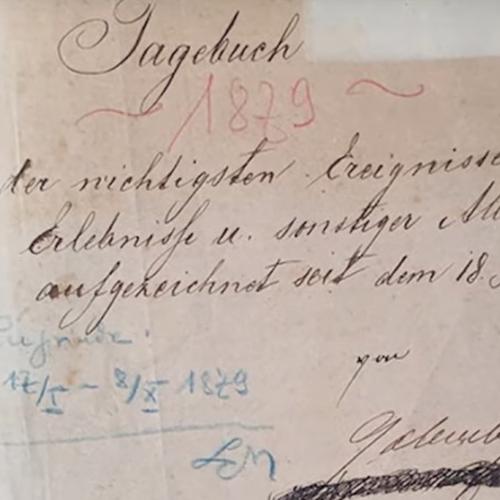 Tagebuch
~ 1879 ~
der wichtigsten Ereignisse
Erlebnisse u. sonstiger
aufgezeichnet seit dem 18.
von
17/I - 8/X 1879